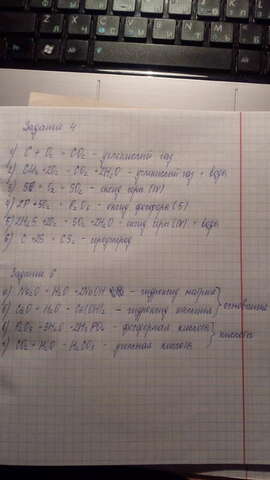 Задание 4
1) C + O₂ = CO₂ - углекислый газ
2) CH₄ + 2O₂ = CO₂ + 2H₂O - углекислый газ + вода
3) S + O₂ = SO₂ - оксид серы (IV)
- оксид фосфора (5)
5) 2H₂S + O₂ = SO₂ + 2H₂O - оксид серы (IV) + вода
6) C + 2S = CS₂ - сероуглерод
Задание 6
а) Na₂O + H₂O = 2NaOH - гидроксид натрия
б) CaO + H₂O = Ca(OH)₂ - гидроксид кальция
основания
в) P₂O₅ + 3H₂O = 2H₃PO₄ - фосфорная кислота
г) CO₂ + H₂O = H₂CO₃ - угольная кислота
кислоты